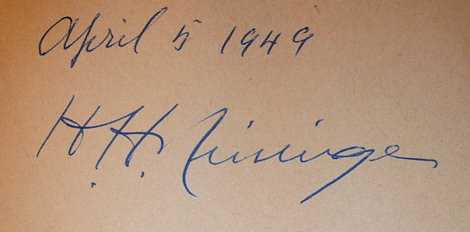 April 5 1949
H. H. Nininger